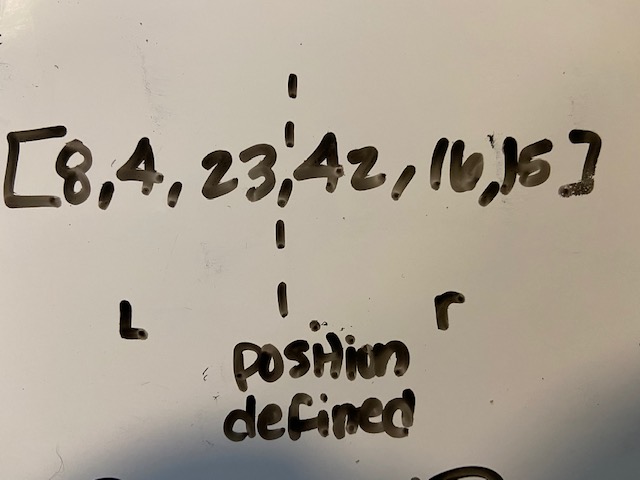 [8,4,23,42,16,15]
L r
position
defined